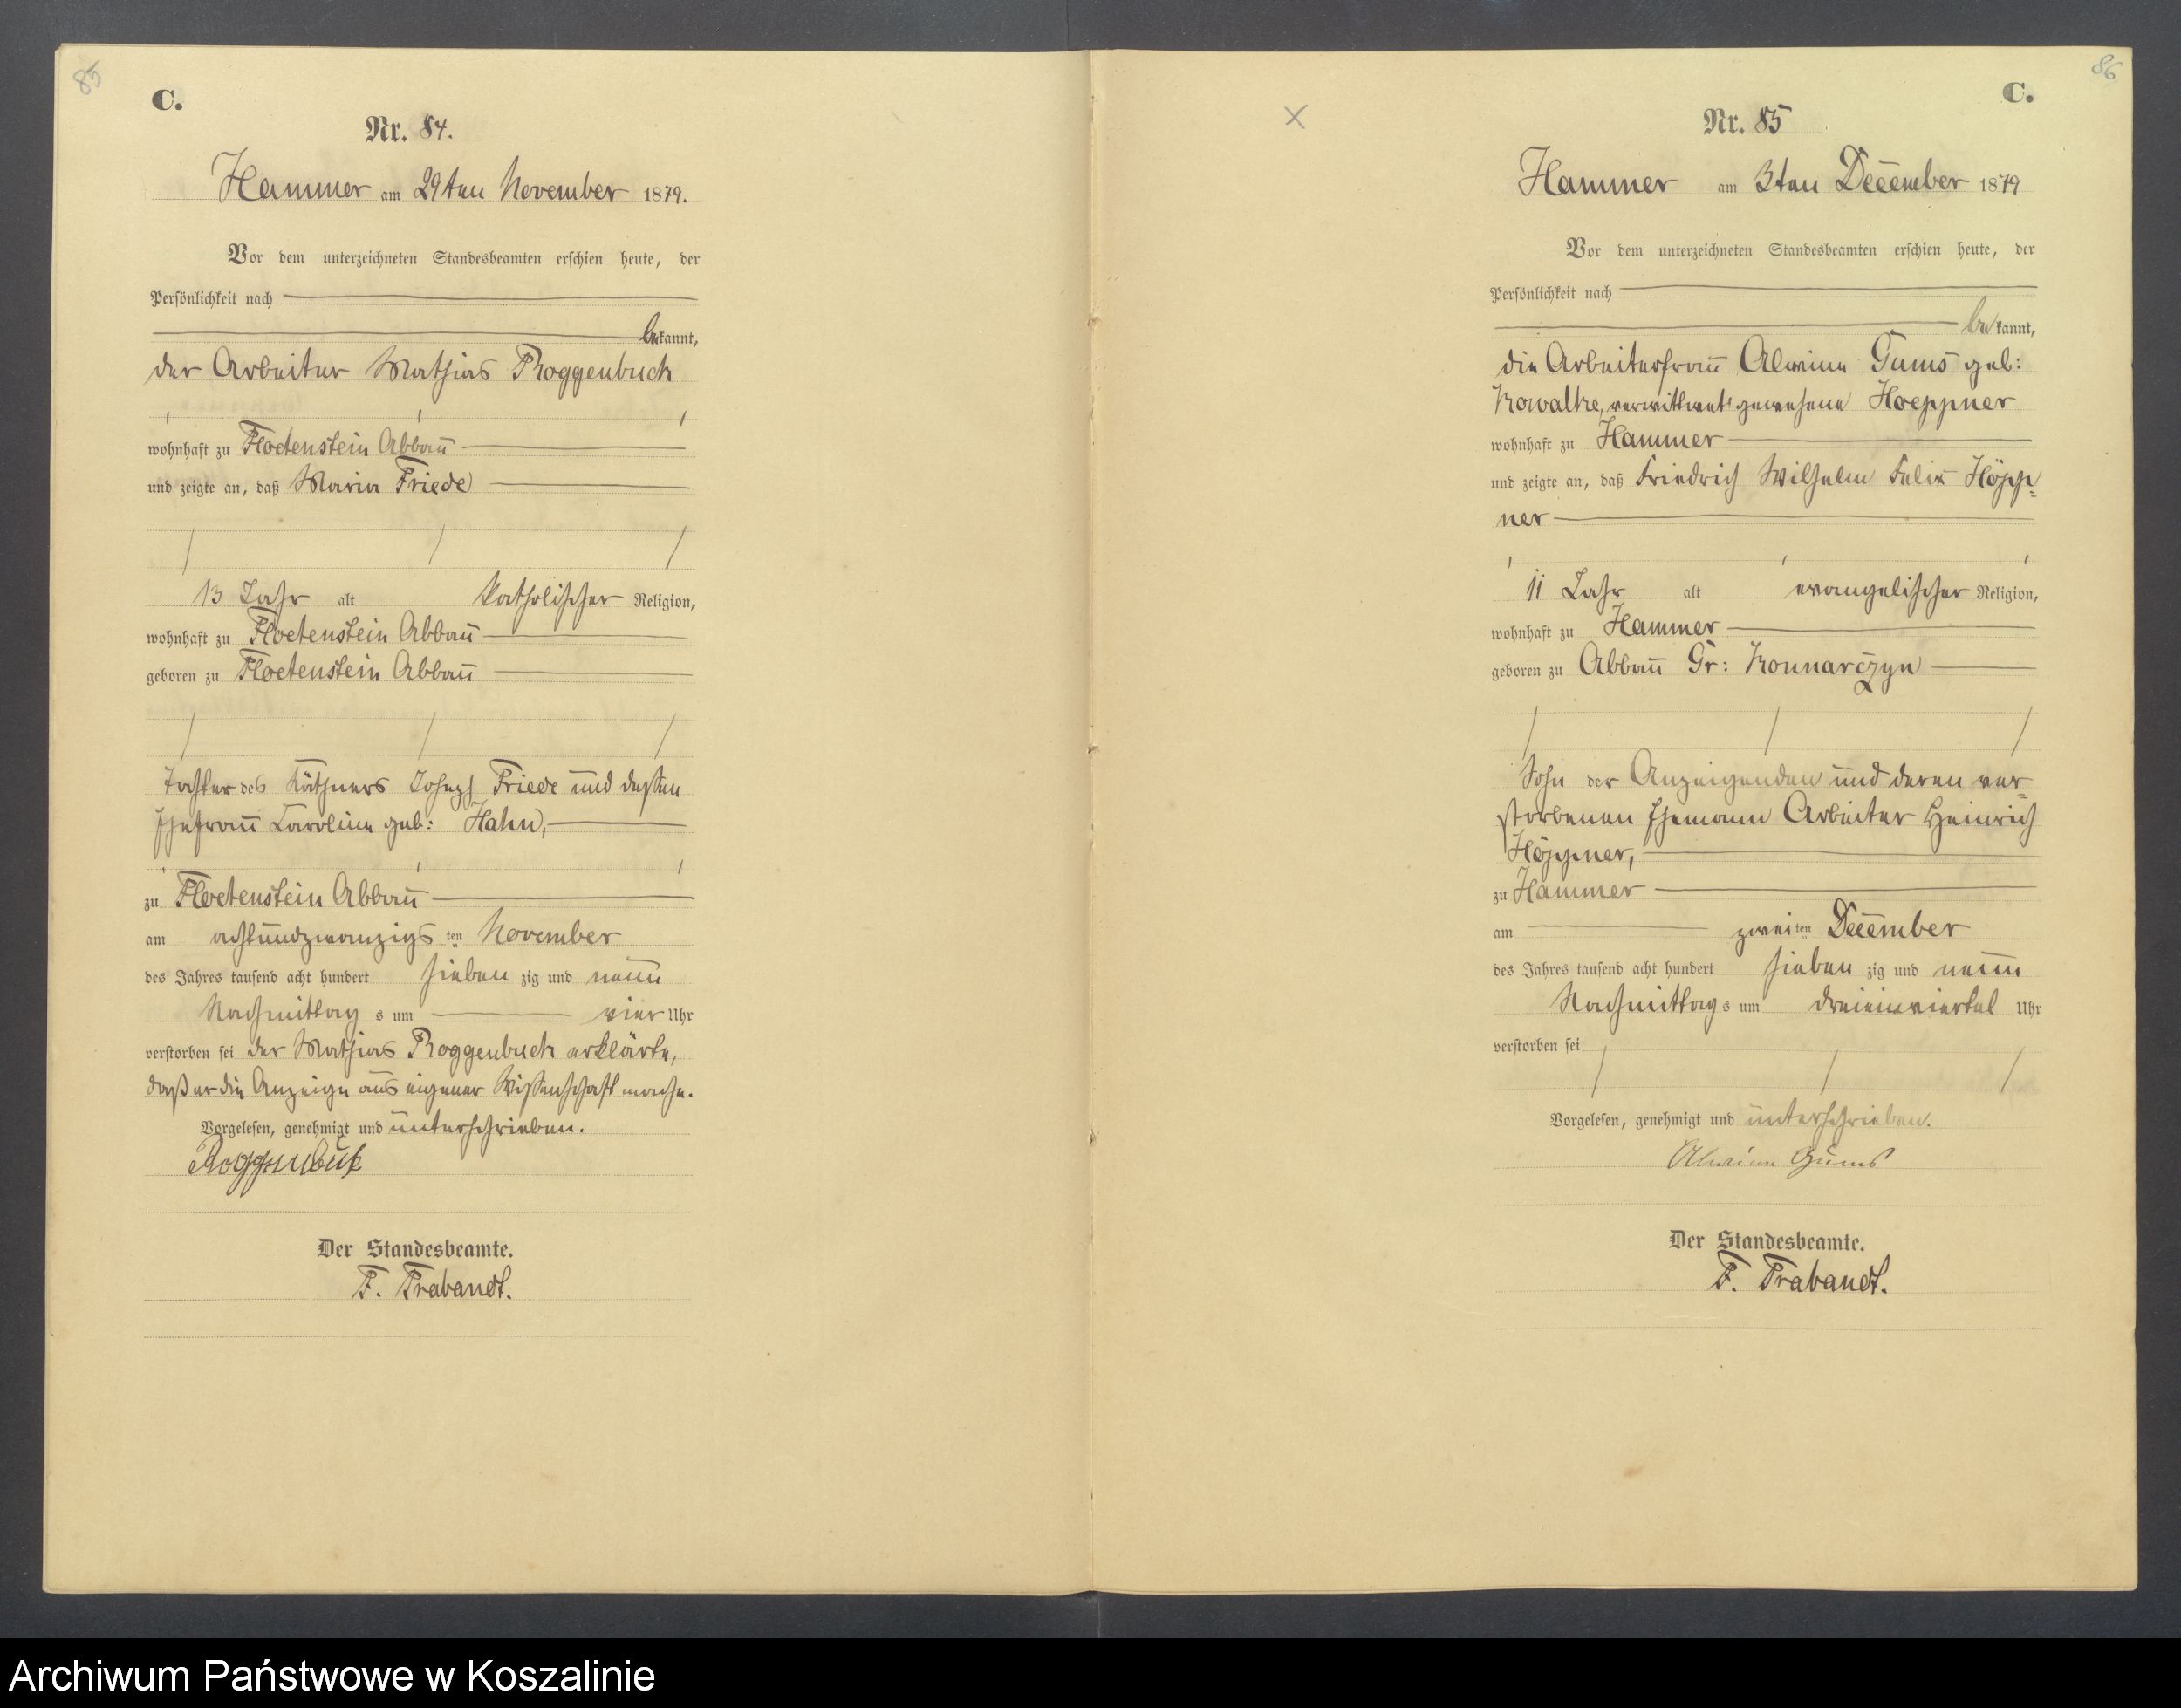 85
C.
Nr. 84.
Hammer am 29ten November 1879.
Vor dem unterzeichneten Standesbeamten erschien heute, der
Persönlichkeit nach
bekannt,
der Arbeiter Mathias Roggenbuck
wohnhaft zu Floetenstein Abbau
und zeigte an, daß Maria Friede
13 Jahr alt katholischer Religion,
wohnhaft zu Floetenstein Abbau
geboren zu Floetenstein Abbau
Tochter des Käthners Joseph Friede und dessen
Ehefrau Caroline geb: Hahn,
zu Floetenstein Abbau
am achtundzwanzigsten November
des Jahres tausend acht hundert siebenzig und neun
Nachmittags um vier Uhr
verstorben sei der Mathias Roggenbuck erklärte,
daß er die Anzeige aus eigener Wissenschaft mache.
Vorgelesen, genehmigt und unterschrieben.
Roggenbuck
Der Standesbeamte.
F. Trabandt.
86
C.
Nr. 85
Hammer am 3ten December 1879
Vor dem unterzeichneten Standesbeamten erschien heute, der
Persönlichkeit nach
bekannt,
die Arbeiterfrau Alwine Gums geb:
Kowalke, verwittwet gewesene Hoeppner
wohnhaft zu Hammer
und zeigte an, daß Friedrich Wilhelm Felix Höpp=
ner
11 Jahr alt evangelischer Religion,
wohnhaft zu Hammer
geboren zu Abbau Gr: Konnarczyn
Sohn der Anzeigenden und deren ver=
storbenen Ehemann Arbeiter Heinrich
Höppner,
zu Hammer
am zweiten December
des Jahres tausend acht hundert siebenzig und neun
Nachmittags um dreieinviertel Uhr
verstorben sei
Vorgelesen, genehmigt und unterschrieben.
Alwine Gums
Der Standesbeamte.
F. Trabandt.
Archiwum Państwowe w Koszalinie